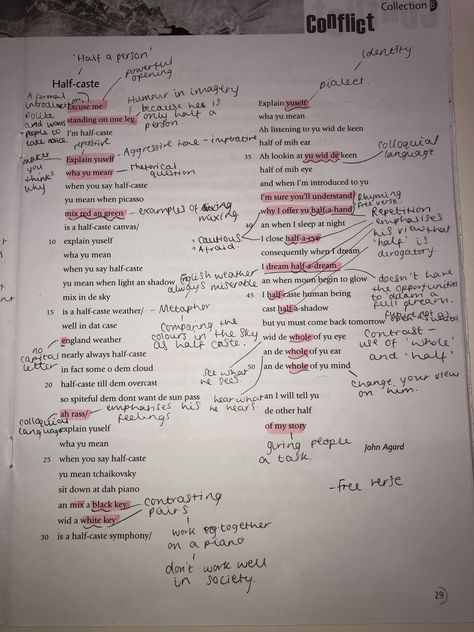 Collection B
Conflict
'Half a person'
Half-caste
powerful
opening
identity
dialect.
A formal
introduction
Polite
and wants
people to
take notice
Excuse me
standing on one leg
I'm half-caste
Humour in imagery
because he is
only half a
person.
repetitive
makes
you
think
why
Explain yuself
wha yu mean
Aggressive tone - imperative
Rhetorical
question
when you say half-caste
yu mean when picasso
mix red an green
examples of mixing
is a half-caste canvas/
10 explain yuself
wha yu mean
when yu say half-caste
yu mean when light an shadow
mix in de sky
English weather
always miserable
15 is a half-caste weather/
Metaphor
well in dat case
Comparing the
colours in the sky
as half caste.
england weather
no
capital
letter
nearly always half-caste
in fact some o dem cloud
20 half-caste till dem overcast
so spiteful dem dont want de sun pass
ah rass/
emphasises his
feelings.
colloquial
language
explain yuself
wha yu mean
25 when yu say half-caste
yu mean tchaikovsky
sit down at dah piano
an mix a black key
wid a white key
30 is a half-caste symphony/
contrasting
pairs
work together
on a piano
don't work well
in society.
Explain yuself
wha yu mean
Ah listening to yu wid de keen
half of mih ear
35 Ah lookin at yu wid de keen
half of mih eye
colloquial
language
and when I'm introduced to yu
I'm sure you'll understand
why I offer yu half-a-hand
Rhyming
free verse
40 an when I sleep at night
I close half-a-eye
cautious
Afraid.
Repetition
emphasises
his view that
'half' is
derogatory.
consequently when I dream
I dream half-a-dream
an when moon begin to glow
doesn't have
the opportunities
to dream a
full dream.
45 I half-caste human being
cast half-a-shadow
but yu must come back tomorrow
wid de whole of yu eye
an de whole of yu ear
50 an de whole of yu mind
Contrast -
use of 'whole'
and 'half'
see what
he sees.
hear what
he hears
change your view
on him.
an I will tell yu
de other half
of my story
giving people
a task.
John Agard
- free verse
29